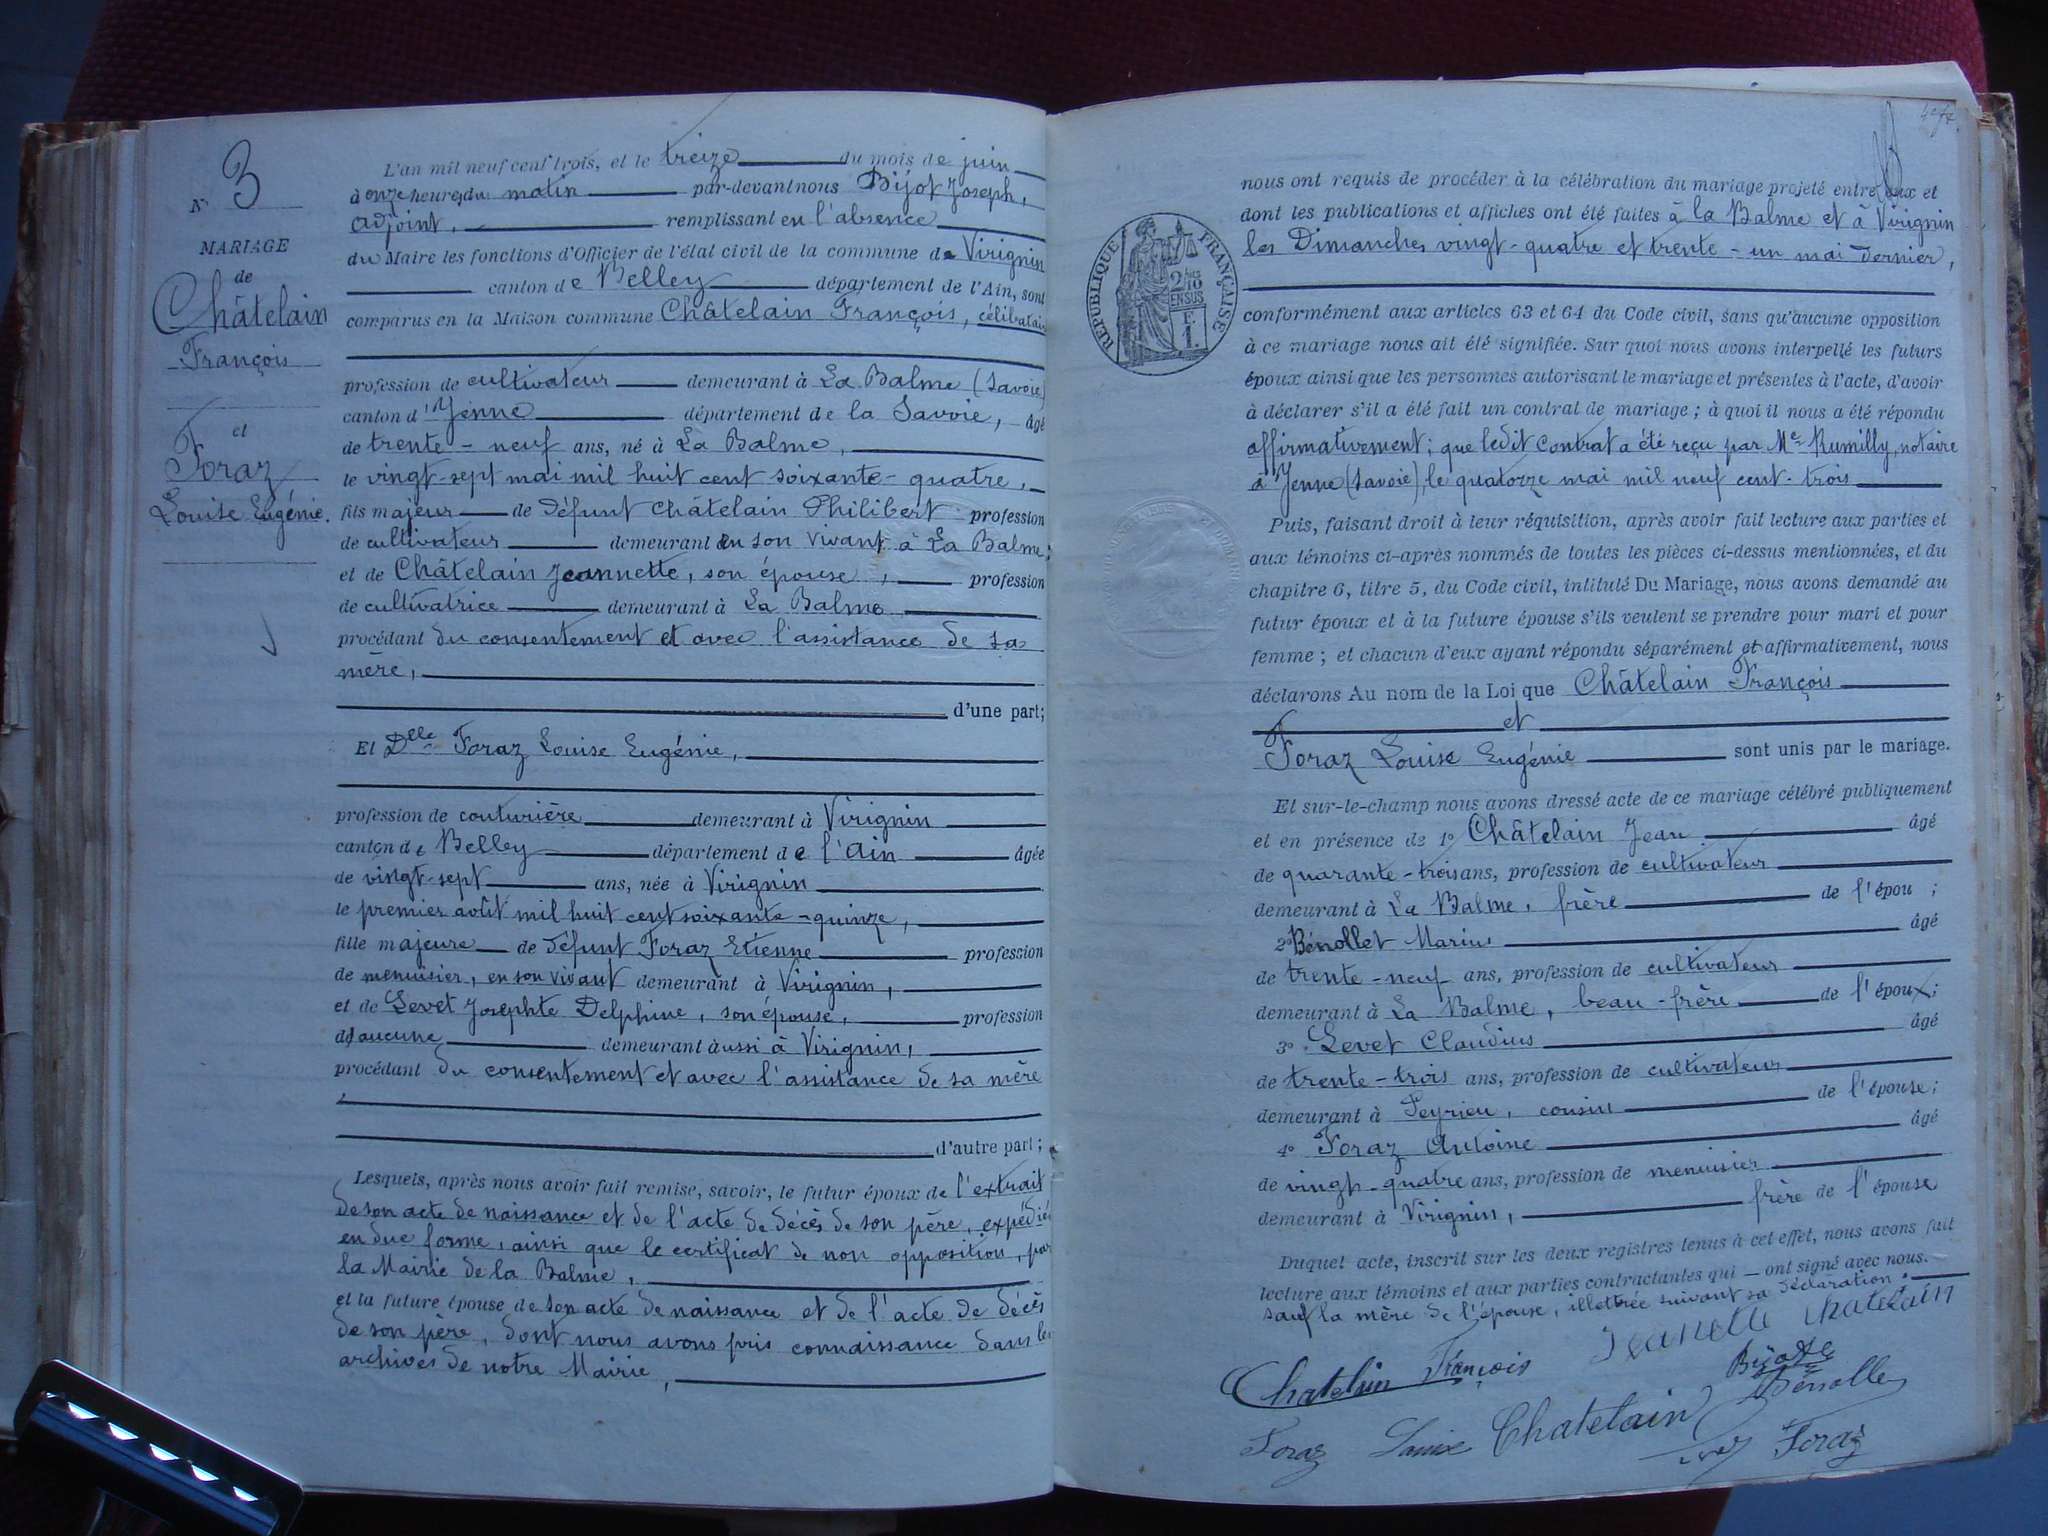 N° 3
MARIAGE
de
Châtelain
François
et
Foraz
Louise Eugénie.
L'an mil neuf cent trois, et le treize du mois de juin
à onze heures du matin par-devant nous Bijot Joseph,
adjoint, remplissant en l'absence
du Maire les fonctions d'Officier de l'état civil de la commune de Virignin
canton de Belley département de l'Ain, sont
comparus en la Maison commune Châtelain François, célibataire
profession de cultivateur demeurant à La Balme (Savoie)
canton d'Yenne département de la Savoie, âgé
de trente-neuf ans, né à La Balme,
le vingt-sept mai mil huit cent soixante-quatre,
fils majeur de défunt Châtelain Philibert profession
de cultivateur demeurant en son vivant à La Balme;
et de Châtelain Jeannette, son épouse, profession
de cultivatrice demeurant à La Balme
procédant du consentement et avec l'assistance de sa
mère,
d'une part;
Et Dlle Foraz Louise Eugénie,
profession de couturière demeurant à Virignin
canton de Belley département de l'Ain âgée
de vingt-sept ans, née à Virignin
le premier août mil huit cent soixante-quinze,
fille majeure de défunt Foraz Etienne profession
de menuisier, en son vivant demeurant à Virignin,
et de Levet Josephte Delphine, son épouse, profession
d'aucune demeurant aussi à Virignin,
procédant du consentement et avec l'assistance de sa mère
,
d'autre part;
Lesquels, après nous avoir fait remise, savoir, le futur époux de l'extrait
de son acte de naissance et de l'acte de décès de son père, expédiés
en due forme, ainsi que le certificat de non opposition, par
la Mairie de la Balme,
et la future épouse de son acte de naissance et de l'acte de décès
de son père, dont nous avons pris connaissance dans les
archives de notre Mairie,
RÉPUBLIQUE FRANÇAISE
2/10
EN SUS
F.
1.
nous ont requis de procéder à la célébration du mariage projeté entre eux et
dont les publications et affiches ont été faites à la Balme et à Virignin
les Dimanches vingt-quatre et trente-un mai dernier,
conformément aux articles 63 et 64 du Code civil, sans qu'aucune opposition
à ce mariage nous ait été signifiée. Sur quoi nous avons interpellé les futurs
époux ainsi que les personnes autorisant le mariage et présentes à l'acte, d'avoir
à déclarer s'il a été fait un contrat de mariage; à quoi il nous a été répondu
affirmativement; que ledit contrat a été reçu par Me Rumilly, notaire
à Yenne (Savoie), le quatorze mai mil neuf cent-trois
Puis, faisant droit à leur réquisition, après avoir fait lecture aux parties et
aux témoins ci-après nommés de toutes les pièces ci-dessus mentionnées, et du
chapitre 6, titre 5, du Code civil, intitulé Du Mariage, nous avons demandé au
futur époux et à la future épouse s'ils veulent se prendre pour mari et pour
femme; et chacun d'eux ayant répondu séparément et affirmativement, nous
déclarons Au nom de la Loi que Châtelain François
et
Foraz Louise Eugénie sont unis par le mariage.
Et sur-le-champ nous avons dressé acte de ce mariage célébré publiquement
et en présence de 1° Châtelain Jean âgé
de quarante-trois ans, profession de cultivateur
demeurant à La Balme, frère de l'épou ;
2° Bénollet Marius âgé
de trente-neuf ans, profession de cultivateur
demeurant à La Balme, beau-frère de l'époux;
3° Levet Claudius âgé
de trente-trois ans, profession de cultivateur
demeurant à Peyrieu, cousin de l'épouse;
4° Foraz Antoine âgé
de vingt-quatre ans, profession de menuisier
demeurant à Virignin, frère de l'épouse
Duquel acte, inscrit sur les deux registres tenus à cet effet, nous avons fait
lecture aux témoins et aux parties contractantes qui ont signé avec nous.
sauf la mère de l'épouse, illettrée suivant sa déclaration.
Jeanette Chatelain
Chatelain François
Foraz Louise Chatelain Bénollet
Foraz